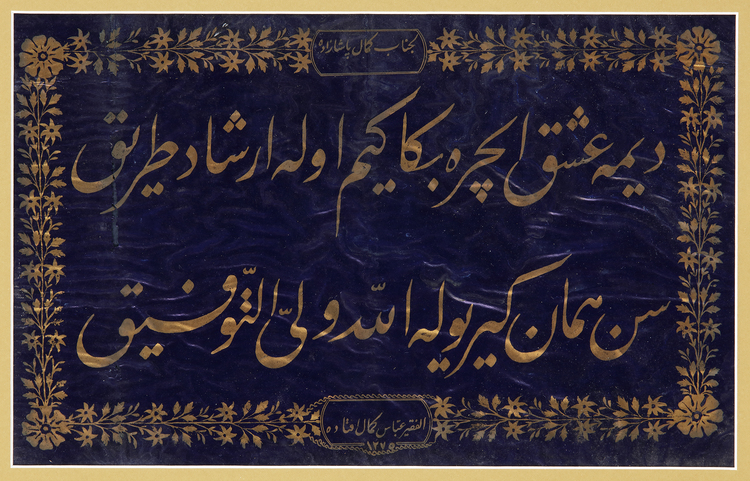 جناب کمال پاشازاده
دیمه عشق ایچره بکا کیم اوله ارشاد طریق
سن همان کیر یوله الله ولیّ التّوفیق
الفقیر عباس کمال فتاده
١٢٧٥